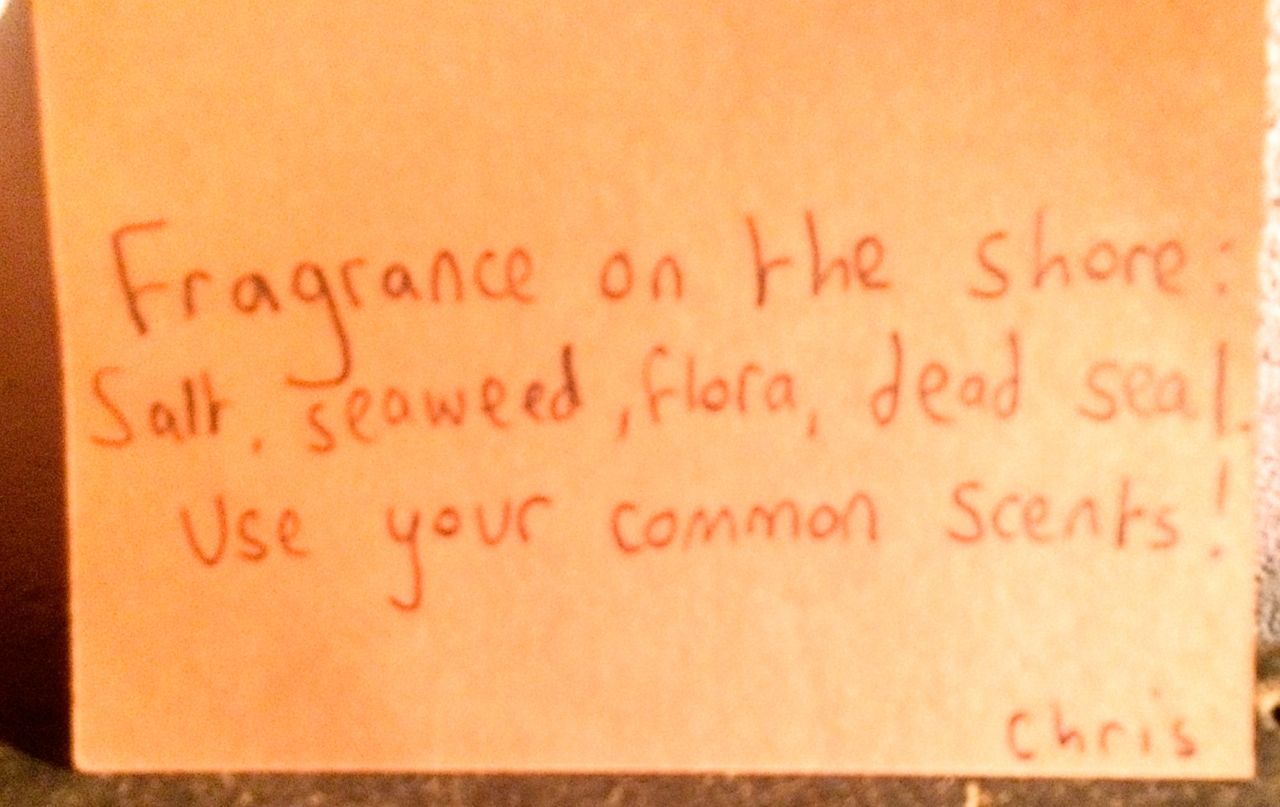 Fragrance on the shore:
Salt, seaweed, flora, dead seal.
Use your common scents!
Chris